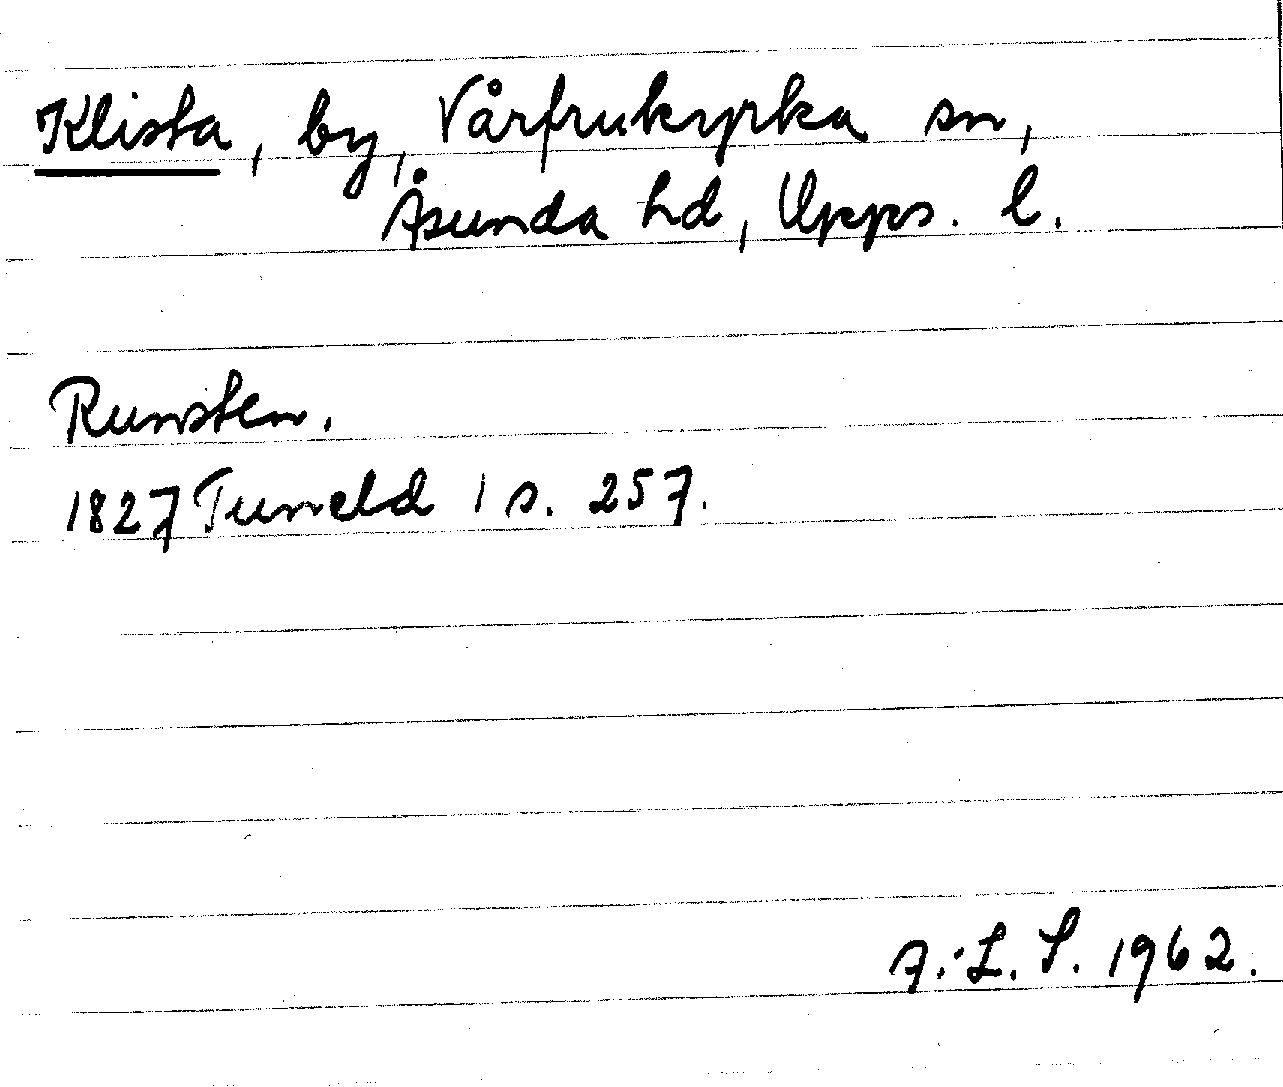 Klista, by, Vårfrukyrka sn,
Åsunda hd, Upps. l.
Runsten.
1827 Tuneld 1 s. 257.
A.-L. S. 1962.